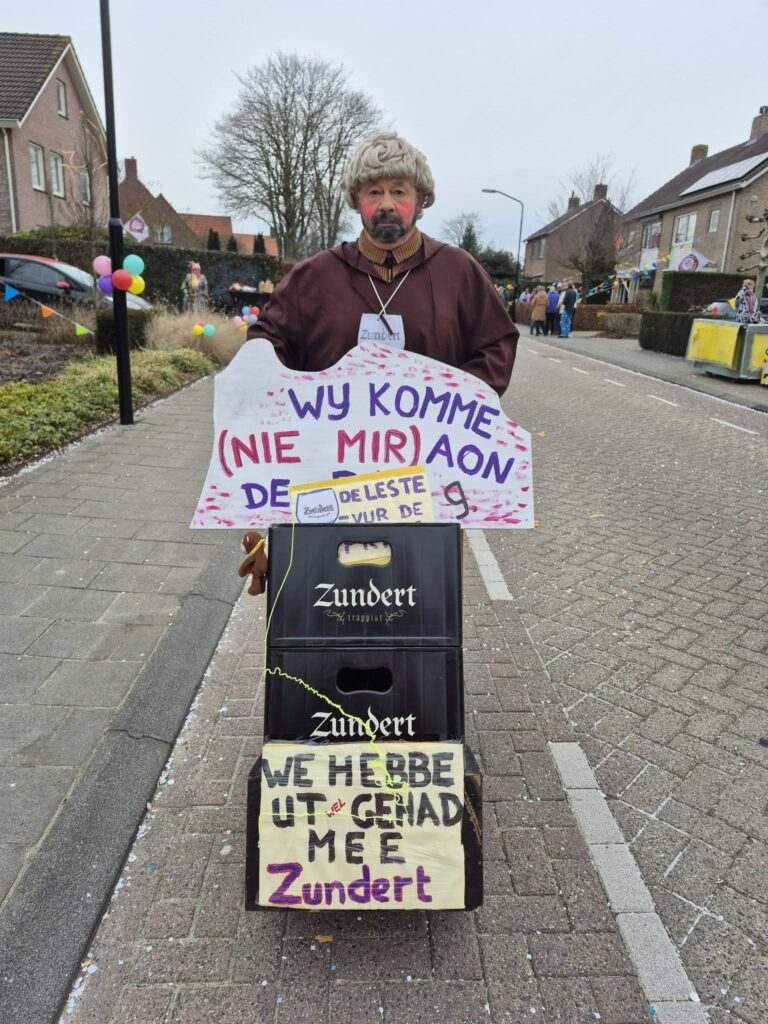 Zundert
WY KOMME
(NIE MIR) AON
DE
g
DE LESTE
Zundert
-VUR DE
Zundert
trappist
Zundert
WE HEBBE
UT WEL GEHAD
MEE
Zundert